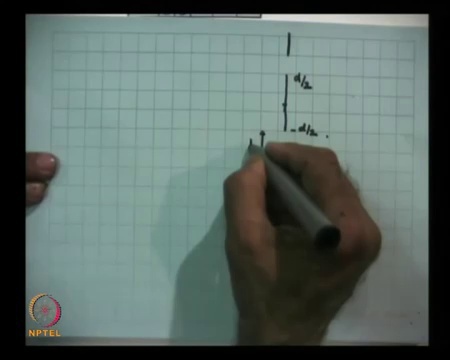 d/2
-d/2
NPTEL